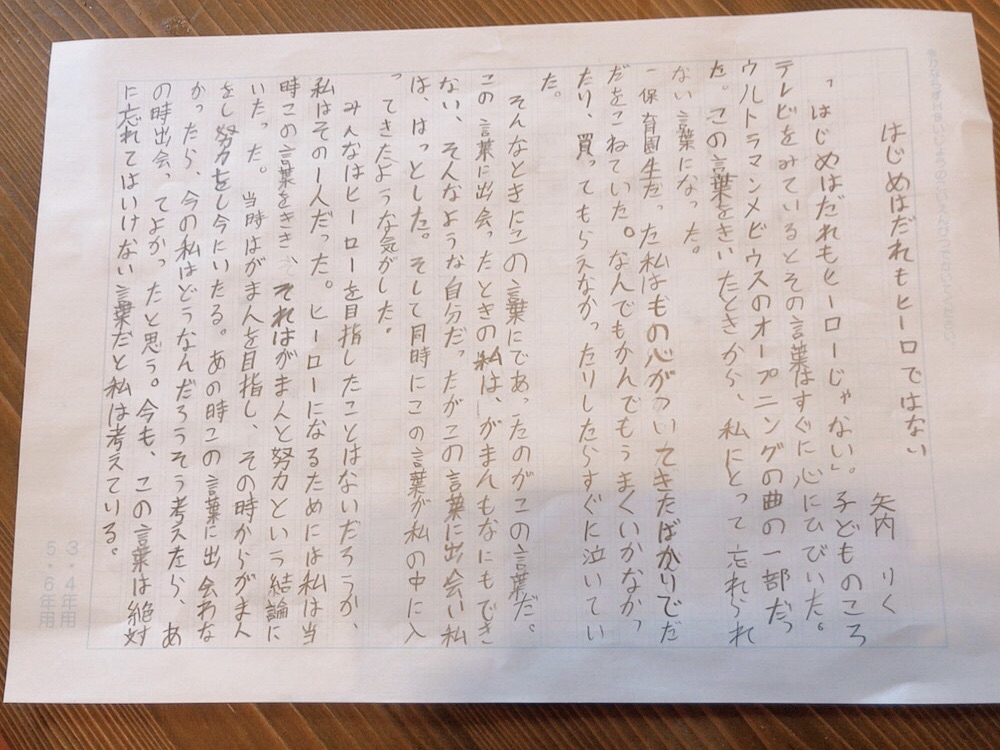 はじめはだれもヒーローではない
矢内 りく
「はじめはだれもヒーローじゃない」。子どものころ
テレビをみているとその言葉はすぐに心にひびいた。
ウルトラマンメビウスのオープニングの曲の一部だっ
た。この言葉をきいたときから、私にとって忘れられ
ない言葉になった。
保育園生だった私はもの心がついてきたばかりでだ
だをこねていた。なんでもかんでもうまくいかなかっ
たり、買ってもらえなかったりしたらすぐに泣いてい
た。
そんなときにこの言葉にであったのがこの言葉だ。
この言葉に出会ったときの私は、がまんもなにもでき
ない、そんなような自分だったがこの言葉に出会い私
は、はっとした。そして同時にこの言葉が私の中に入
ってきたような気がした。
みんなはヒーローを目指したことはないだろうか、
私はその一人だった。ヒーローになるためには私は当
時この言葉をきき、それはがまんと努力という結論に
いたった。当時はがまんを目指し、その時からがまん
をし努力をし今にいたる。あの時この言葉に出会わな
かったら、今の私はどうなんだろうそう考えたら、あ
の時出会ってよかったと思う。今も、この言葉は絶対
に忘れてはいけない言葉だと私は考えている。
3・4年用
5・6年用